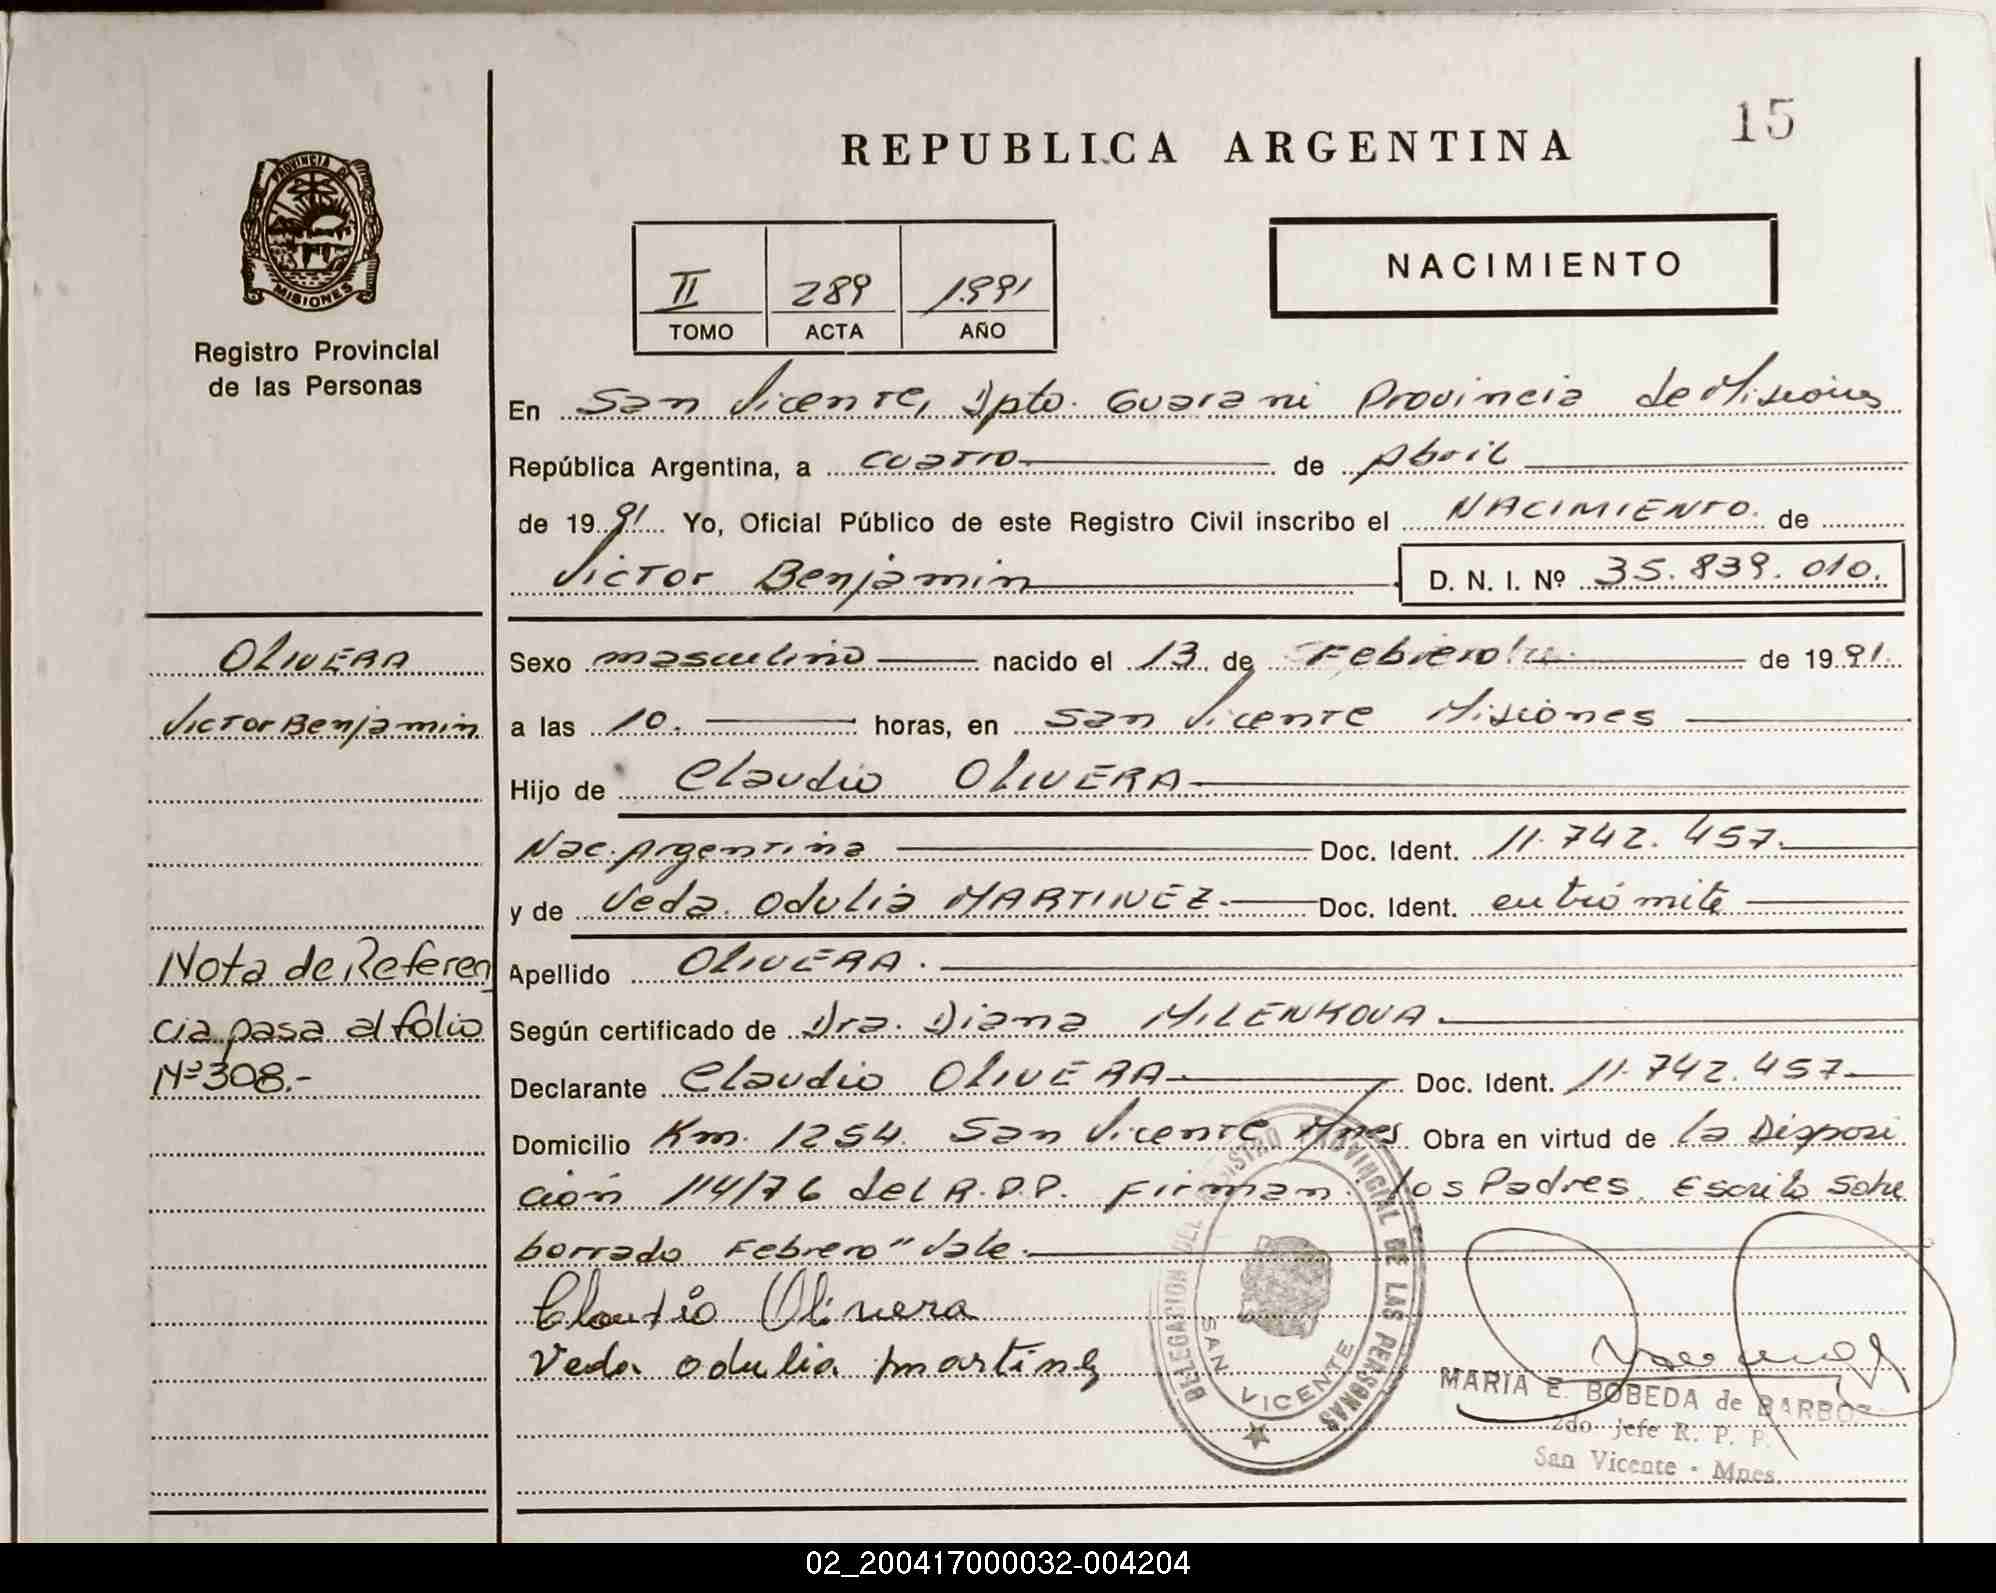 15
REPUBLICA ARGENTINA
PROVINCIA DE
MISIONES
Registro Provincial
de las Personas
II 289 1991
TOMO ACTA AÑO
NACIMIENTO
En San Vicente, Dpto. Guarani Provincia de Misiones
República Argentina, a cuatro de Abril
de 1991 Yo, Oficial Público de este Registro Civil inscribo el NACIMIENTO de
Victor Benjamin D. N. I. Nº 35.839.010.
OLIVERA
Victor Benjamin
Nota de Referen
cia pasa al folio
Nº 308.-
Sexo masculino nacido el 13 de Febrero de 1991
a las 10. horas, en San Vicente Misiones
Hijo de Claudio OLIVERA
Nac. Argentina Doc. Ident. 11.742.457.
y de Veda Odulia MARTINEZ.- Doc. Ident. en trámite
Apellido OLIVERA.
Según certificado de Dra. Diana MILENKOVA.
Declarante Claudio OLIVERA Doc. Ident. 11.742.457
Domicilio Km. 1254. San Vicente Mnes Obra en virtud de la Disposi
ción 114/76 del R.P.P. Firman los Padres. Escrito Sobre
borrado Febrero" Vale.
Claudio Olivera
Veda odulia martinez
DELEGACION DEL REGISTRO PROVINCIAL DE LAS PERSONAS
SAN VICENTE
MARIA E. BOBEDA de BARBOZ
2do Jefe R. P. P.
San Vicente - Mnes.
02_200417000032-004204